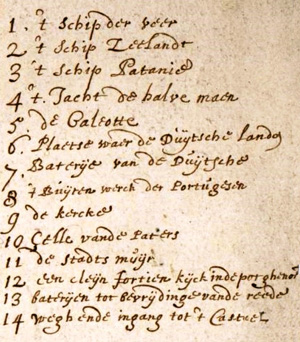 1. 't Schip der veer
2 't Schip Zeelandt
3 't Schip Patanie
4 't. Jacht de halve maen
5. de Galeotte
6. Plaetse waer de Duÿtsche Landẽ
7. Baterije van de Duÿtsche
8 't Buÿten werck der Portugesen
9 de kercke
10 Celle vande Paters
11 de stadts mũÿr
12 een cleÿn fortien kijck inde porghenor
13 baterijen tot bevrijdinge vande reede
14 wegh ende ingang tot 't Casteel